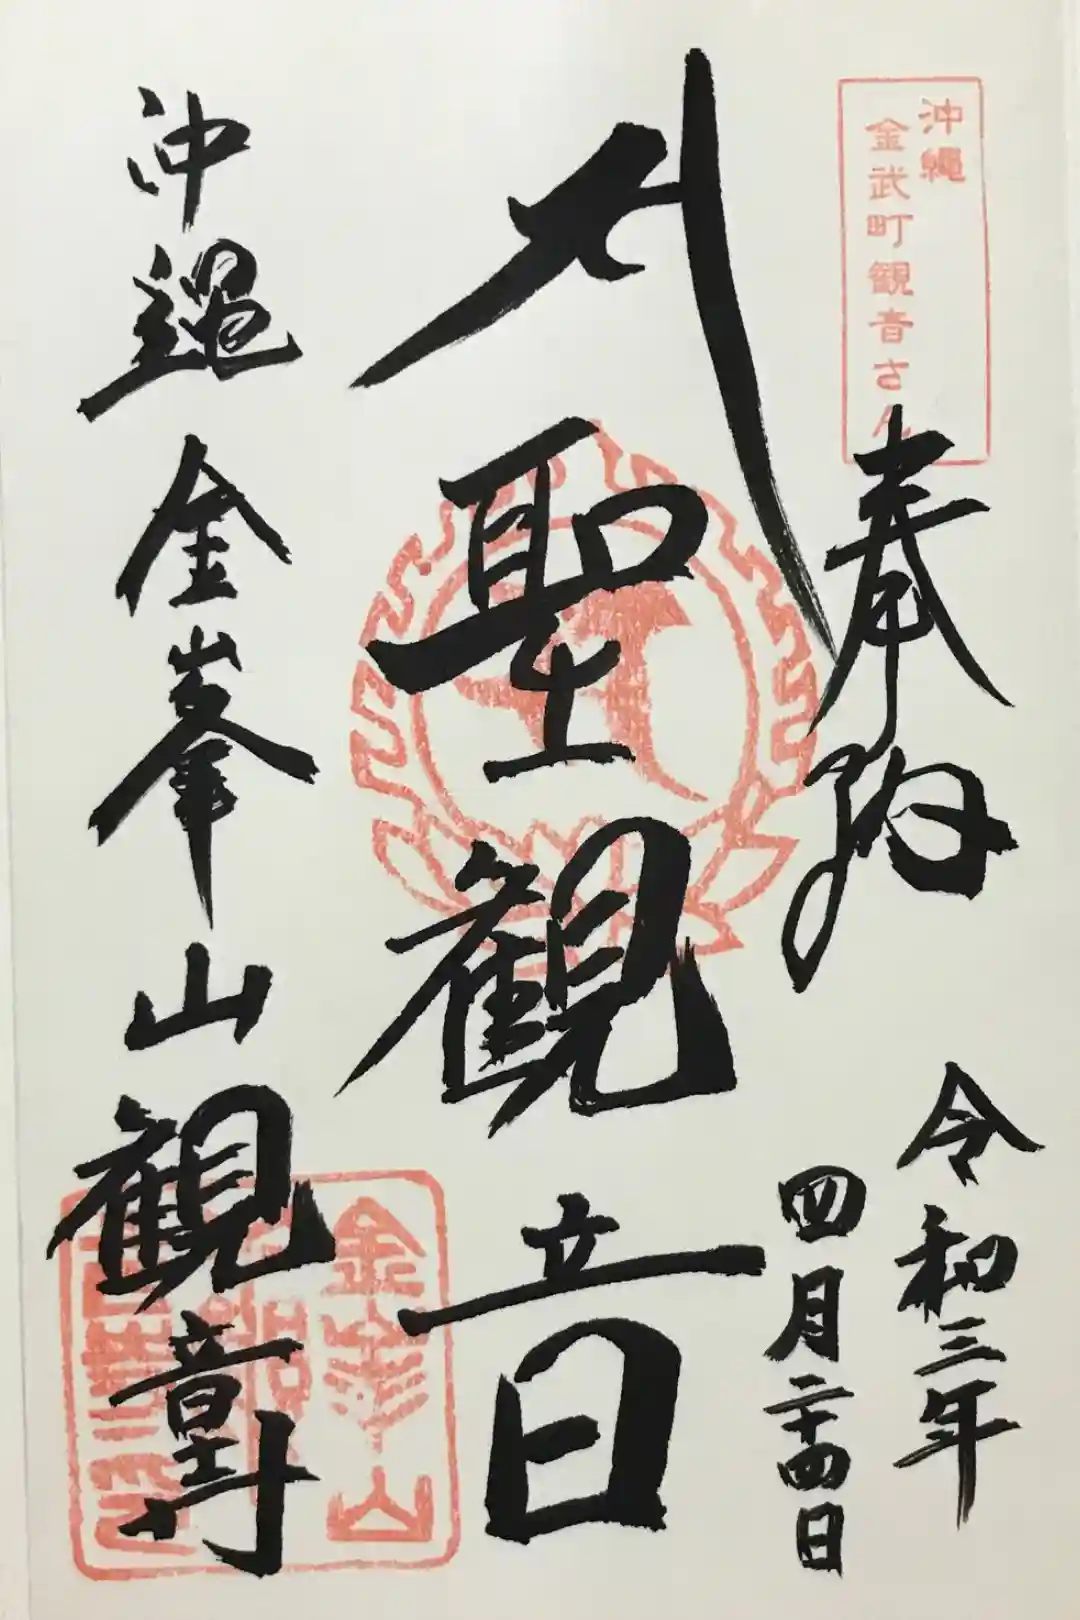 沖繩
金武町観音さん
奉納
令和三年
四月二十四日
聖観音
沖縄 金峯山 観音寺
金峯山